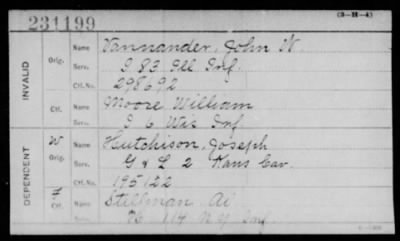 231199
(3-H-4)
INVALID
Orig.
Name Vannander, John W.
Serv. I 83 Ill Inf.
Ctf. No. 298692
Ctf.
Name Moore William
Serv. I 6 Wis Inf.
DEPENDENT
W
Orig.
Name Hutchison, Joseph
Serv. G & L 2 Kans Cav.
Ctf. No. 195122
Ctf.
Name Stillman, Al
Serv. 114 N.Y. Inf.